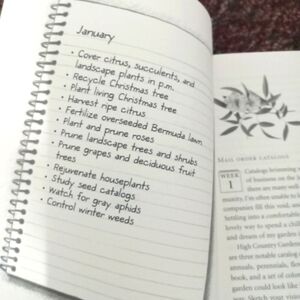 January
• Cover citrus, succulents, and
landscape plants in p.m.
• Recycle Christmas tree
• Plant living Christmas tree
• Harvest ripe citrus
• Fertilize overseeded Bermuda lawn
• Plant and prune roses
• Prune landscape trees and shrubs
• Prune grapes and deciduous fruit
trees
• Rejuvenate houseplants
• Study seed catalogs
• Watch for gray aphids
• Control winter weeds
MAIL ORDER CATALOGS
WEEK
1
Catalogs brimming
of business on the
there are many
munity. I'm often unable to
companies fill this void,
Settling into a comfortable
lovely way to spend a chill
and dream of my garden
High Country Garden
are three notable catalog
annuals, perennials,
book, and a set of color